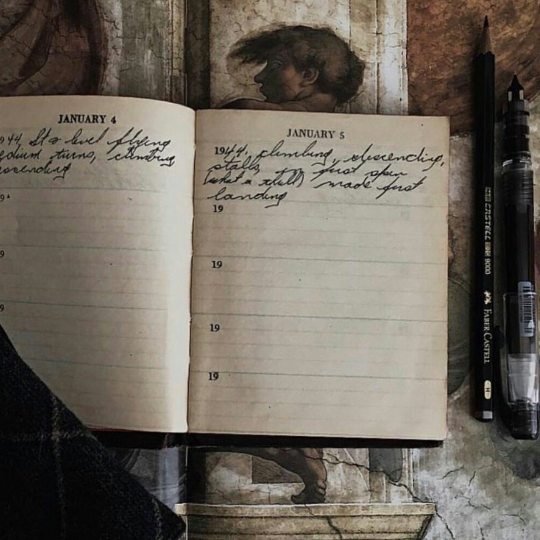 JANUARY 4
944, St & level flying
medium turns, climbing
descending
9
9
9
JANUARY 5
1944, climbing, descending,
stalls, my first spin
(what a thrill) made first
landing
19
19
19
19
CASTELL 9000
FABER CASTELL
H